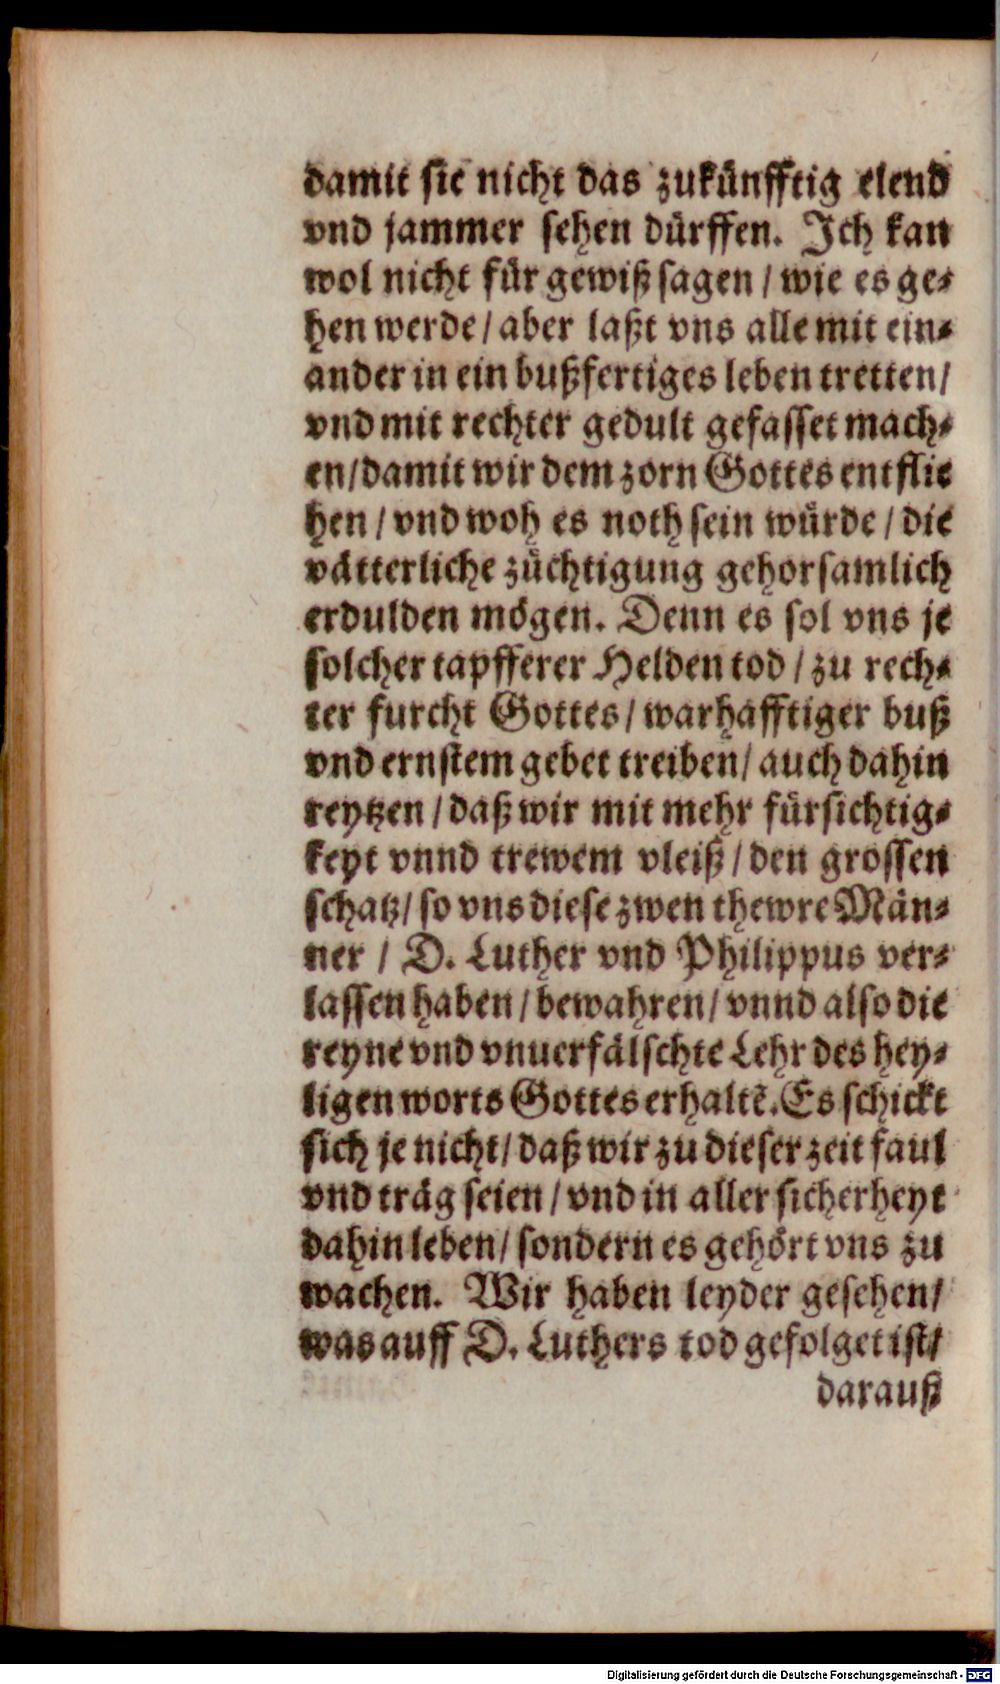 damit sie nicht das zukünfftig elend
vnd jammer sehen dürffen. Ich kan
wol nicht für gewiß sagen / wie es ge⸗
hen werde / aber laßt vns alle mit ein⸗
ander in ein bußfertiges leben tretten /
vnd mit rechter gedult gefasset mach⸗
en / damit wir dem zorn Gottes entflie
hen / vnd woh es noth sein würde / die
vätterliche züchtigung gehorsamlich
erdulden mögen. Denn es sol vns je
solcher tapfferer Helden tod / zu rech⸗
ter furcht Gottes / warhafftiger buß
vnd ernstem gebet treiben / auch dahin
reytzen / daß wir mit mehr fürsichtig⸗
keyt vnnd trewem vleiß / den grossen
schatz / so vns diese zwen thewre Män⸗
ner / D. Luther vnd Philippus ver⸗
lassen haben / bewahren / vnnd also die
reyne vnd vnuerfälschte Lehr des hey⸗
ligen worts Gottes erhaltẽ. Es schickt
sich je nicht / daß wir zu dieser zeit faul
vnd träg seien / vnd in aller sicherheyt
dahin leben / sondern es gehört vns zu
wachen. Wir haben leyder gesehen /
was auff D. Luthers tod gefolget ist /
darauß
Digitalisierung gefördert durch die Deutsche Forschungsgemeinschaft - DFG